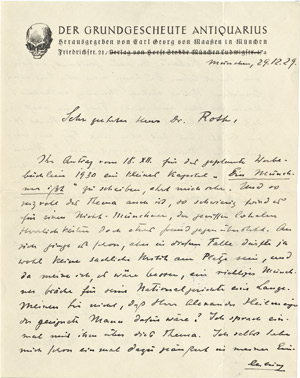 DER GRUNDGESCHEUTE ANTIQUARIUS
Herausgegeben von Carl Georg von Maassen in München
Friedrichstr. 21, Verlag von Horst Stobbe München Ludwigstr. 17a
München, 29.12.29.
Sehr geehrter Herr Dr. Roth,
Ihr Antrag vom 18. XII. für das geplante Werbe-
büchlein 1930 ein kleines Kapitel „Der Münch-
ner ißt" zu schreiben, ehrt mich sehr. Und so
reizvoll das Thema auch ist, so schwierig
für einen Nicht-Münchner, der gewissen lokalen
Herrlichkeiten doch etwas fremd gegenübersteht. An
sich ginge es schon, aber in diesem Falle dürfte ja
wohl keine sachliche Kritik am Platze sein, und
da meine ich, es wäre besser, ein richtiger Münch-
ner bräche für seine Nationalgerichte eine Lanze.
Meinen Sie nicht, daß Herr Alexander
der geeignete Mann dafür wäre? Ich sprach ein-
mal mit ihm über dies Thema. Ich selbst habe
mich schon einmal dazu geäußert in meiner Ein-